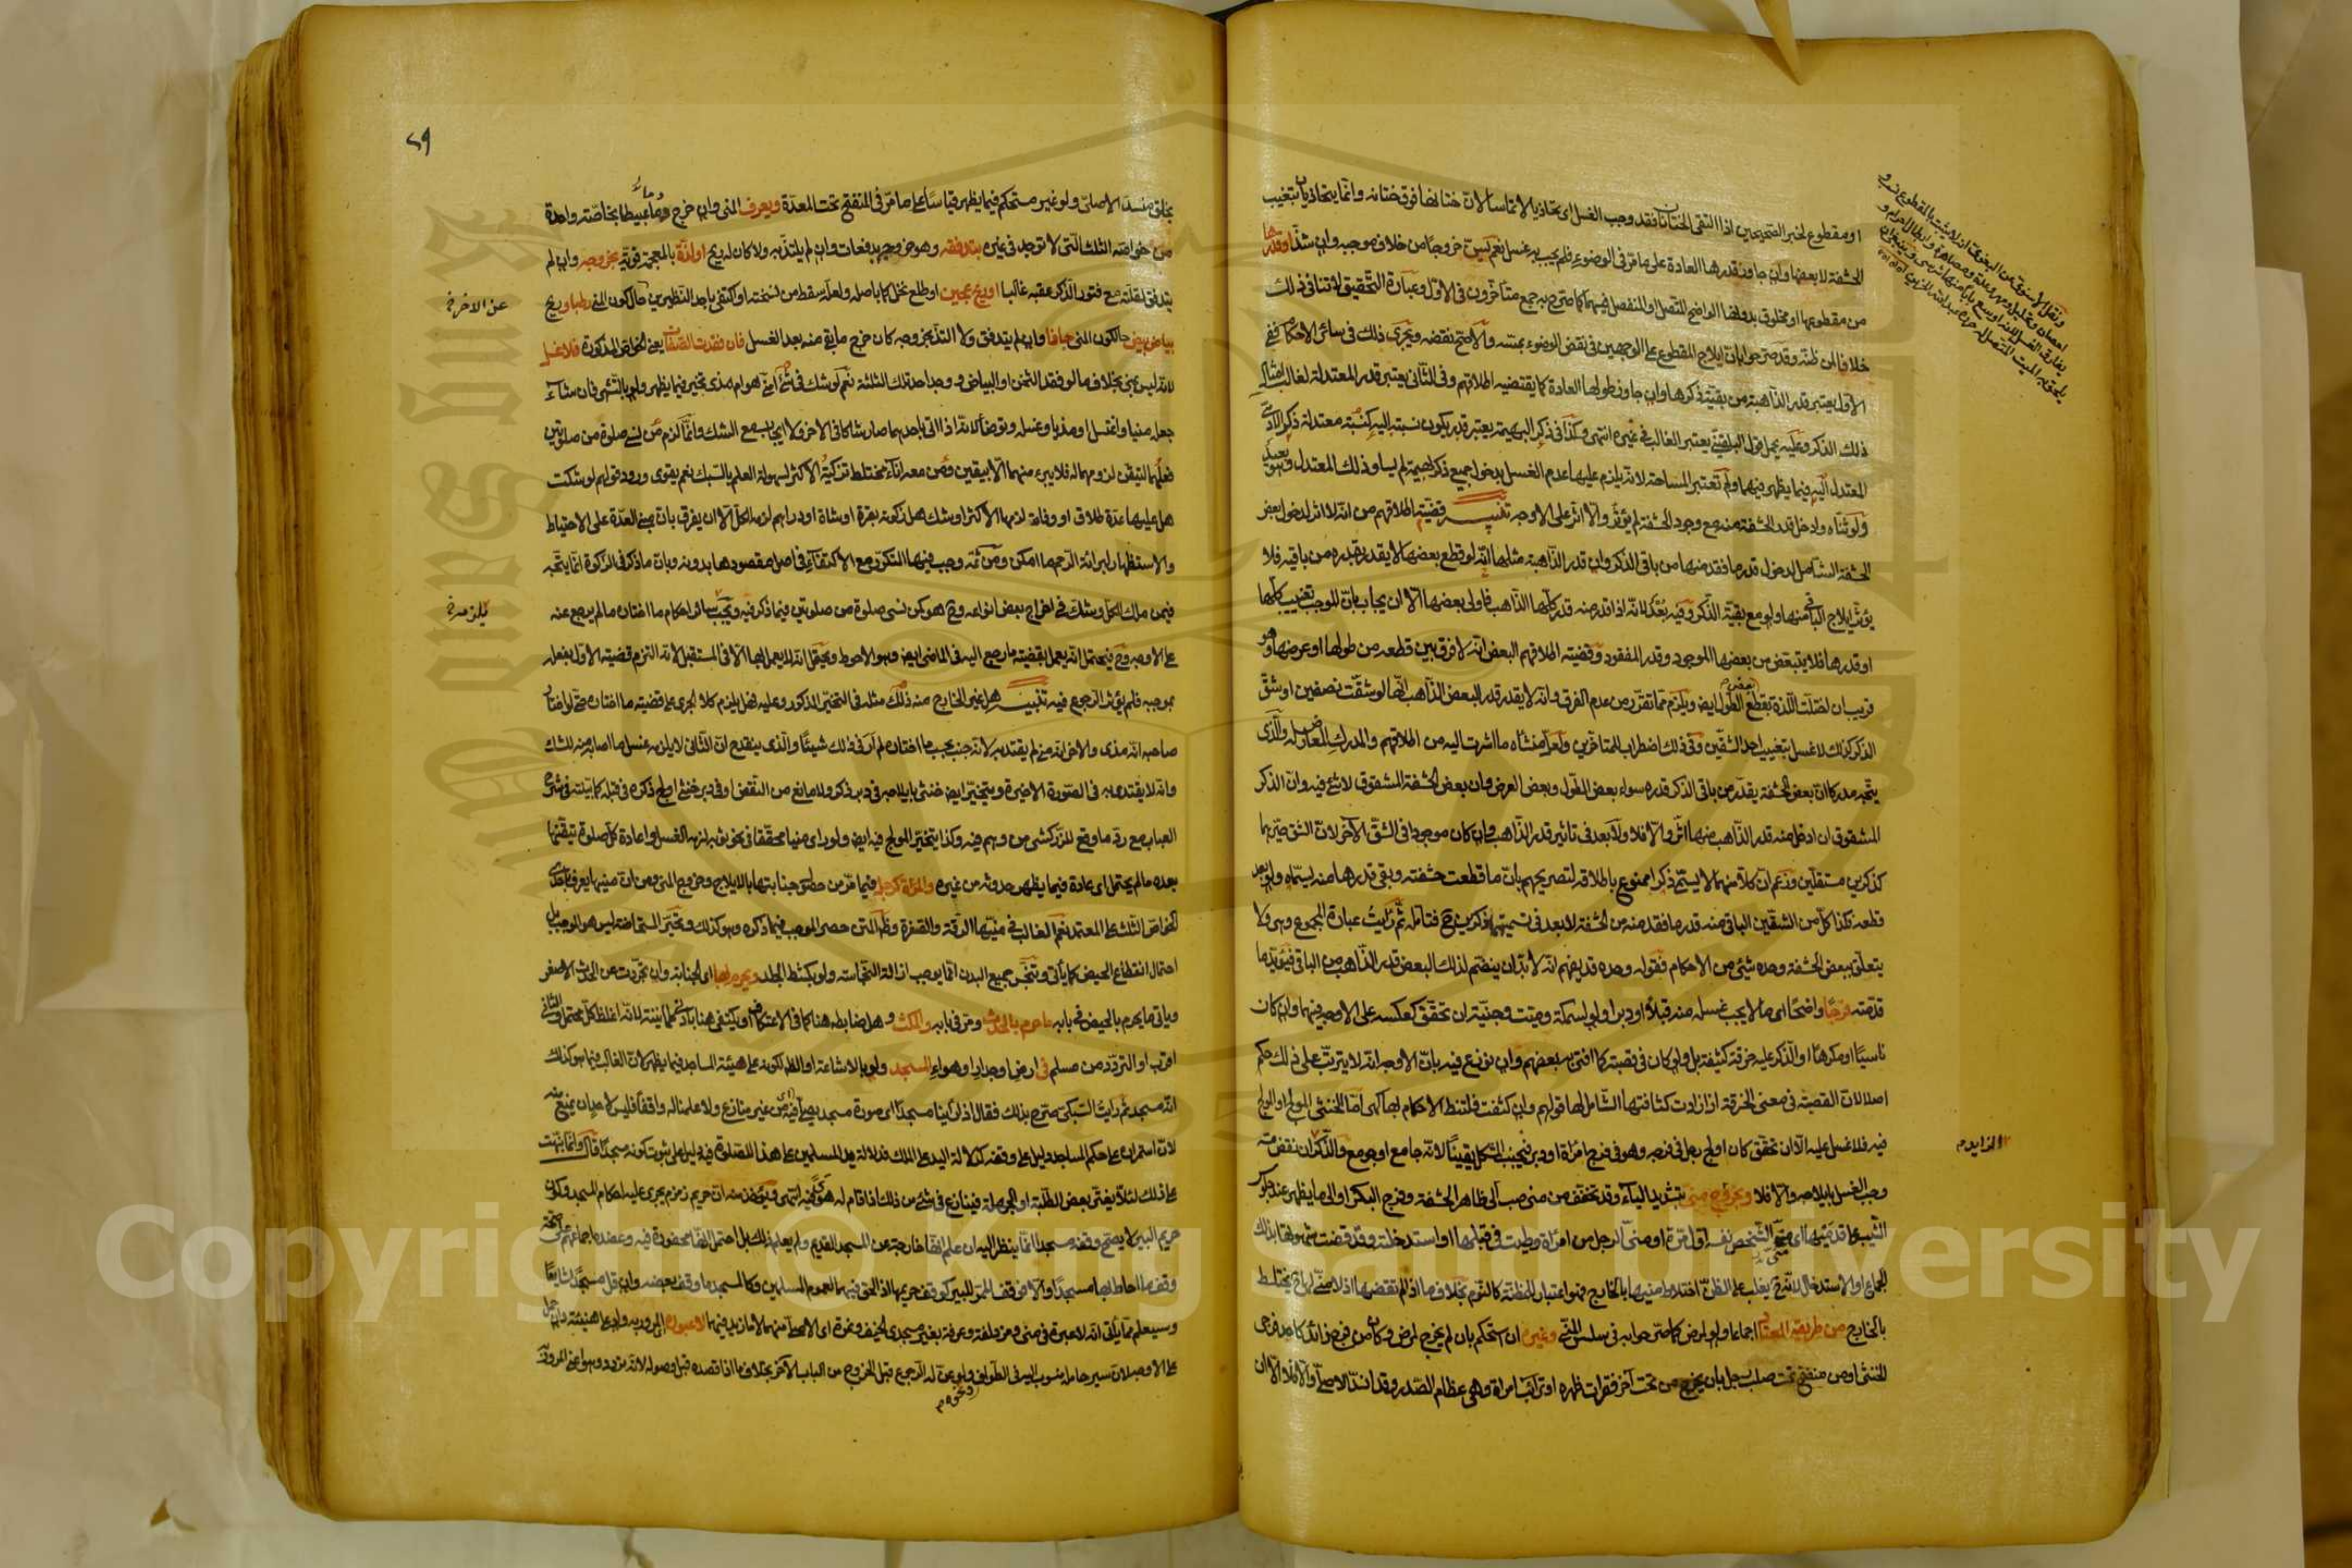 او مقطوع لخبر الصحيحين اذا التقى الختانان فقد وجب الغسل اى تحاذيا لا تماسا لان ختانها فوق ختانه وانما يتحاذيان بتغييب
الحشفة لا بعضها وان جاوز قدرها العادة على ما مر فى الوضوء فلم يجب به غسل نعم يسن خروجا من خلاف موجبه وان شذ او قدرها
من مقطوعها او مخلوق بدونها الواضح المتصل او المنفصل فيهما كما صرح به جمع متاخرون فى الاول وعبارة التحقيق لا تنافى ذلك
خلافا لمن ظنه وقد صرحوا بان ايلاج المقطوع على الوجهين فى نقض الوضوء بمسه والاصح نقضه ويجرى ذلك فى سائر الاحكام ففى
الاول يعتبر قدر الذاهبة من بقية ذكرها وان جاوز طولها العادة كما يقتضيه اطلاقهم وفى الثانى يعتبر قدر المعتدلة لغالب امثال
ذلك الذكر وعليه يحمل قول البلقينى يعتبر الغالب فى غيره انتهى وكذا فى ذكر البهيمة يعتبر قدر يكون نسبته اليه كنسبة معتدلة ذكر الادمى
المعتدل اليه فيما يظهر فيهما ولم تعتبر المساحة لانه يلزم عليها عدم الغسل بدخول جميع ذكر بهيمة لم يساو ذلك المعتدل وهو بعيد
ولو ثناه وادخل قدر الحشفة منه مع وجود الحشفة لم يؤثر والا اثر على الاوجه تنبيه قضية اطلاقهم من انه لا اثر لدخول بعض
الحشفة الشامل لدخول قدر ما فقد منها من باقى الذكر وان قدر الذاهبة مثلها انه لو قطع بعضها لا يقدر قدره من باقيه فلا
يؤثر ايلاج الباقى منها ولو مع بقية الذكر وفيه بعد لانه اذا قدر منه قدر كلها الذاهب فاولى بعضها الا ان يجاب بان الموجب تغييب كلها
او قدرها فلا يتبعض من بعضها الموجود وقدر المفقود وقضيته اطلاقهم البعض انه لا فرق بين قطعه من طولها او عرضها وهو
قريب ان اختلت اللذة بقطع بعض الطول ايضا ويلزم مما تقرر من عدم الفرق وانه لا يقدر قدر البعض الذاهب انها لو شقت نصفين او شق
الذكر كذلك لا غسل بتغييب احد الشقين وفى ذلك اضطراب للمتاخرين ولعل منشأه ما اشرت اليه من اطلاقهم والمدرك المعارض له والذى
يتجه مدركا ان بعض الحشفة يقدر من باقى الذكر قدره سواء بعض الطول وبعض العرض وان بعض الحشفة المشقوق لا شئ فيه وان الذكر
المشقوق ان ادخل منه قدر الذاهب منها اثر والا فلا ولا بعد فى تاثير قدر الذاهب وان كان موجودا فى الشق الآخر لان الشق صيرهما
كذكرين مستقلين وزعم ان كلا منهما لا يسمى ذكرا ممنوع باطلاقه لتصريحهم بان ما قطعت حشفته وبقى قدرها منه يسماه
قطعه فكذا كل من الشقين الباقى منه قدر ما فقد منه من الحشفة لا بعد فى تسميتهما ذكرين ح فتامله ثم رأيت عبارة المجموع وهى ولا
يتعلق ببعض الحشفة وحده شئ من الاحكام فقوله وحده قد يفهم انه لا بد ان ينضم لذلك البعض قدر الذاهب من الباقى فيؤيد ما
قدمته فرجا واضحا اى ما لا يجب غسله منه قبلا او دبرا ولو لسمكة وميت وجنية ان تحقق كعكسه على الاوجه فيهما وان كان
ناسيا او مكرها او الذكر عليه خرقة كثيفة بل ولو كان فى قصبة كما افتى به بعضهم وان نوزع فيه بان الاوجه انه لا يترتب على ذلك حكم
اصلا لان القصبة فى معنى الخرقة اذا زادت كثافتها الشامل لها قولهم وان كثفت فلتنط الاحكام بها كهى اما الخنثى المولج او المولج
فيه فلا غسل عليه الا ان تحقق كأن اولج رجل فى فرجه وهو فى فرج امرأة او دبر فيجنب المشكل يقينا لانه جامع او جومع والذكر ان نقض منه
وجب الغسل بايلاجه والا فلا وبخروج منى بتشديد الياء وقد تخفف من منى صب الى ظاهر الحشفة وفرج البكر او الى ما يظهر عند جلوس
الثيب على قدميها اى منى الشخص نفسه اول مرة او منى الرجل من امرأة وطئت فى قبلها او استدخلته وقد قضت شهوتها بذلك
الجماع او الاستدخال لانه ح يغلب على الظن اختلاط منيها بالخارج فهو اعتبار للمظنة كالنوم بخلاف ما اذا لم تقضها اذ لا منى لها ح يختلط
بالخارج من طريقه المعتاد اجماعا ولو لمرض كما صرحوا به فى سلس المنى وغيره ان استحكم بان لم يخرج لمرض وكان من فرج زائد كاحد فرجى
الخنثى او من منفتح تحت صلب رجل بان يخرج من تحت آخر فقرات ظهره او ترائب امرأة وهى عظام الصدر وقد انسد الاصلى والا فلا الا ان
الزايد م
٢٩
يخلق منسد الاصلى ولو غير مستحكم فيما يظهر قياسا على ما مر فى المنفتح تحت المعدة ويعرف المنى وان خرج دما عبيطا بخاصة واحدة
من خواصه الثلث التى لا توجد فى غيره بتدفقه وهو خروجه بدفعات وان لم يلتذ به ولا كان له ريح او لذة بالمعجمة قوية بخروجه وان لم
يتدفق لقلته مع فتور الذكر عقبه غالبا او ريح عجين او طلع نخل كما باصله ولعله سقط من نسخته او اكتفى باحد النظيرين حال كون المنى رطبا وريح
بياض بيض حال كون المنى جافا وان لم يتدفق ولا التذ بخروجه كأن خرج ما بقى منه بعد الغسل فان فقدت الصفات يعنى الخواص المذكورة فلا غسل
لانه ليس بمنى بخلاف ما لو فقد الثخن او البياض ووجد احد تلك الثلثة نعم لو شك فى شئ أمنى هو ام مذى تخير فيما يظهر ولو بالتشهى فان شاء
جعله منيا واغتسل او مذيا وغسله وتوضأ لانه اذا اتى باحدهما صار شاكا فى الآخر ولا ايجاب مع الشك وانما لزم من نسى صلوة من صلوتين
فعلهما لتيقن لزومهما له فلا يبرء منهما الا بيقين ومن معه اناء مختلط تزكية الاكثر لسهولة العلم بالسبك نعم يقوى ورود قولهم لو شكت
هل عليها عدة طلاق او وفاة لزمها الاكثر او شك هل زكوته بقرة او شاة او دراهم لزمه الكل الا ان يفرق بان مبنى العدة على الاحتياط
والاستظهار لبرائة الرحم ما امكن ومن ثمه وجب فيها التكرر مع الاكتفاء فى اصل مقصودها بدونه وبان ما ذكر فى الزكوة انما يتجه
فيمن ملك الكل وشك فى اخراج بعض انواعه وح هو كمن نسى صلوة من صلوتين فيما ذكر فيه ويجب سائر احكام ما اختاره ما لم يرجع عنه
على الاوجه وح فيحتمل انه يعمل بقضية ما رجع اليه فى الماضى ايضا وهو الاحوط ويحتمل انه لا يعمل بها الا فى المستقبل لانه التزم قضية الاول بفعله
بموجبه فلم يؤثر الرجوع فيه تنبيه هل غير الخارج منه ذلك مثله فى التخيير المذكور وعليه فهل يلزم كلا الجرى على قضية ما اختاره حتى لو اختار
صاحبه انه مذى والآخر انه منى لم يقتد به لانه جنب بحسب ما اختاره لم ار فى ذلك شيئا والذى ينقدح ان الثانى لا يلزمه غسل ما اصابه منه للشك
وانه لا يقتدى به فى الصورة الاخيرة ويتخير ايضا خنثى بايلاجه فى دبر ذكر ولا مانع من النقض او فى دبر خنثى اولج ذكره فى قبله كما بينته فى شرح
العباب مع رد ما وقع للزركشى من وهم فيه وكذا يتخير المولج فيه ايضا ولو رأى منيا محققا فى نحو ثوبه لزمه الغسل واعادة كل صلوة تيقنها
بعده ما لم يحتمل اى عادة فيما يظهر حدوثه من غيره والمرأة كرجل فيما مر من حصول جنابتها بالايلاج وخروج المنى ومن ان منيها يعرف باحدى
الخواص الثلث على المعتمد نعم الغالب فى منيها الرقة والصفرة وظاهر المتن حصر الموجب فيما ذكره وهو كذلك وتحير المستحاضة ليس هو الموجب بل
احتمال انقطاع الحيض كما يأتى وتنجس جميع البدن انما يوجب ازالة النجاسة ولو بكشط الجلد ويحرم بها اى الجنابة وان تجردت عن الحدث الاصغر
ويأتى ما يحرم بالحيض فى بابه ما حرم بالحدث ومر فى بابه والمكث وهل ضابطه هنا كما فى الاعتكاف او يكتفى هنا بادنى طمأنينة لانه اغلظ كل محتمل والثانى
اقرب او التردد من مسلم فى ارض او جدار او هواء المسجد ولو بالاشاعة او الظاهر لكونه على هيئة المساجد فيما يظهر لان الغالب فيما هو كذلك
انه مسجد ثم رأيت السبكى صرح بذلك فقال اذا رأينا مسجدا اى صورة مسجد يصلى فيه من غير منازع ولا علمنا له واقفا فليس لاحد ان يمنع منه
لان استمراره على حكم المساجد دليل على وقفه كدلالة اليد على الملك فدلالة يد المسلمين على هذا للصلوة فيه دليل على ثبوت كونه مسجدا قال وانما نبهت
على ذلك لئلا يغتر بعض الطلبة او الجهلة فينازع فى شئ من ذلك اذا قام له هوى فيه انتهى ويؤخذ منه ان حريم زمزم يجرى عليه احكام المسجد وكون
حريم البير لا يصح وقفه مسجدا انما ينظر اليه ان علم انها خارجة عن المسجد القديم ولم يعلم ذلك بل احتمل انها محفورة فيه وعضده اجماعهم على صحة
وقف ما احاط بها مسجدا
وسيعلم مما يأتى انه لا عبرة فى منى ومزدلفة وعرفة بغير مسجدى الخيف ونمرة اى الاصل منهما لا ما زيد فيهما لا عبوره اى المرور به ولو على هينته وان حمل
على الاوجه لان سير حامله منسوب اليه فى الطواف ونحوه ولو عن له الرجوع قبل الخروج من الباب الآخر بخلاف ما اذا قصده قبل وصوله لانه تردد وهو اعنى المرور
عن الآخر خ
يلزمه خ